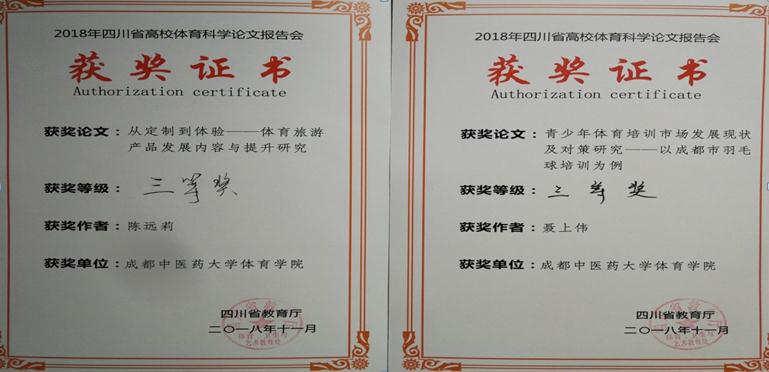 2018年四川省高校体育科学论文报告会
获奖证书
Authorization certificate
获奖论文：从定制到体验——体育旅游
产品发展内容与提升研究
获奖等级：三等奖
获奖作者：陈远莉
获奖单位：成都中医药大学体育学院
四川省教育厅
二〇一八年十一月
体育 卫生与
艺术教育处
2018年四川省高校体育科学论文报告会
获奖证书
Authorization certificate
获奖论文：青少年体育培训市场发展现状
及对策研究——以成都市羽毛
球培训为例
获奖等级：三等奖
获奖作者：聂上伟
获奖单位：成都中医药大学体育学院
四川省教育厅
二〇一八年十一月
体育 卫生与
艺术教育处